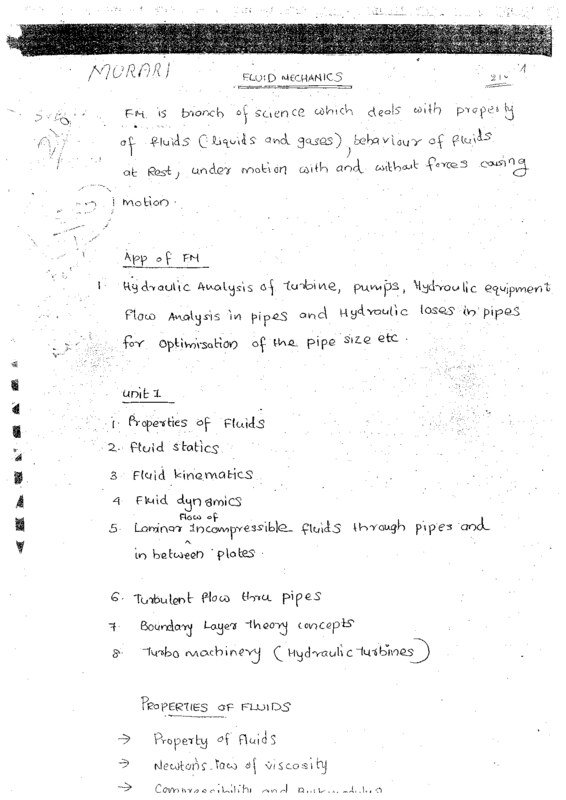 MORARI
FLUID MECHANICS
1
FM is branch of science which deals with property
of fluids (liquids and gases), behaviour of fluids
at Rest, under motion with and without forces causing
motion.
App of FM
1 Hydraulic Analysis of turbine, pumps, Hydraulic equipment
Flow Analysis in pipes and Hydraulic loses in pipes
for optimisation of the pipe size etc.
unit 1
1. Properties of Fluids
2. Fluid statics
3 Fluid kinematics
4 Fluid dynamics
5. Laminar flow of Incompressible fluids through pipes and
in between plates.
6. Turbulent flow thru pipes
7 Boundary Layer theory concepts
8. Turbo machinery (Hydraulic turbines)
PROPERTIES OF FLUIDS
→ Property of fluids
→ Newton's law of viscosity
→ Compressibility and Bulkmodulus